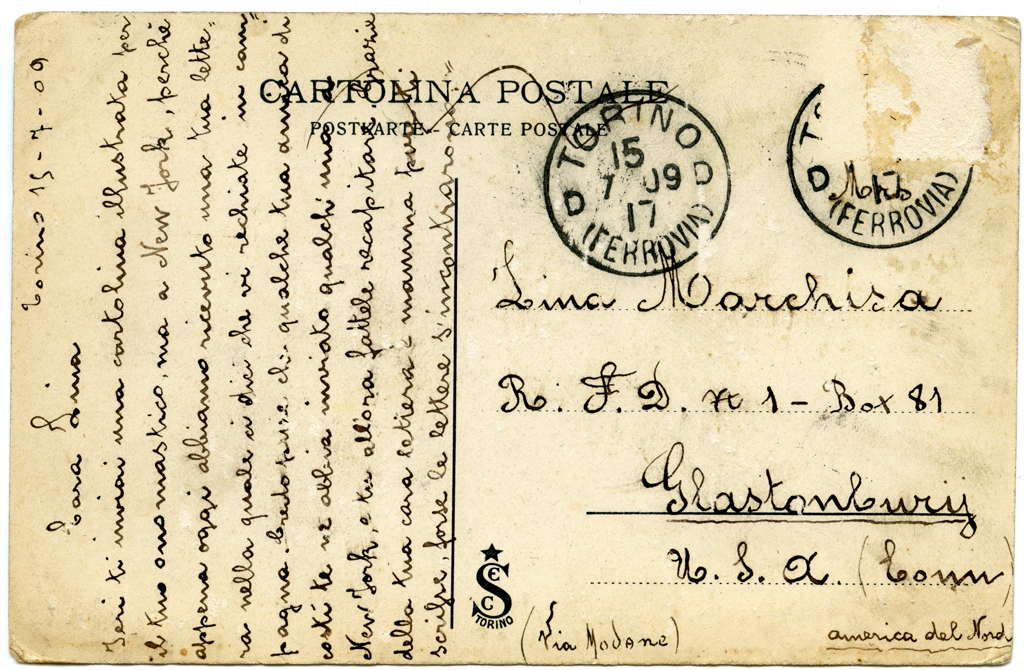 CARTOLINA POSTALE
POSTKARTE - CARTE POSTALE
Torino 15-7-09
Cara Lina
Ieri ti inviai una cartolina illustrata per
il tuo onomastico, ma a New York, perchè
appena oggi abbiamo ricevuto una tua lette-
ra nella quale ci dici che vi rechiate in cam
pagna. Credo pure che qualche tua amica di
costì te ne abbia inviato qualchi una
New York, e tu allora fattele recapitar, grazie
della tua cara lettera e mamma puri
scrisse, forse le lettere s'incontrarono
TORINO
15
7 09
17
D D
(FERROVIA)
TO
D 17
(FERROVIA)
Lina Marchisa
R. F. D. N 1 - Box 81
Glastonbury
U. S. A. (Conn)
america del Nord
(Via Modane)
SCCE
TORINO